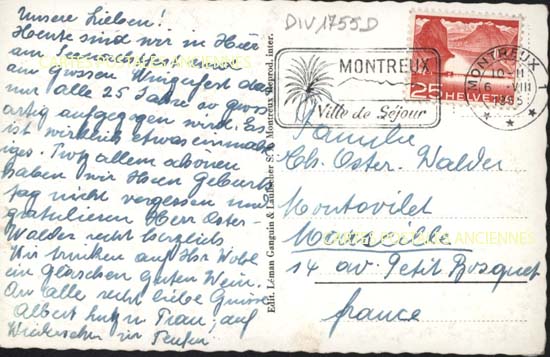 Unsere Lieben!
Heute sind wir in Hier
am
am Grossen Winzerfest das
nur alle 25 Jahre so gross
artig aufgezogen wird. Es
ist wirklich etwas einmal
iges. Trotz allem
haben wir Ihren Geburts
tag nicht vergessen und
gratulieren Herr Oster-
Walder recht herzlich
Wir trinken auf Ihr Wohl
ein Gläschen guten Wein.
An alle recht liebe Grüsse
Albert u Frau, auf
Wiedersehn in
CARTES POSTALES ANCIENNES
Edit. Léman Canguin & Laubscher S. A. Montreux Reprod. inter.
DIV1755D
MONTREUX
Ville de Séjour
25 HELVETIA
MONTREUX 1
10-11
6.VIII
1955
Familie
Ch. Oster-Walder
Montovilet
Marseille
CARTES POSTALES ANCIENNES
14 av Petit Bosquet
france